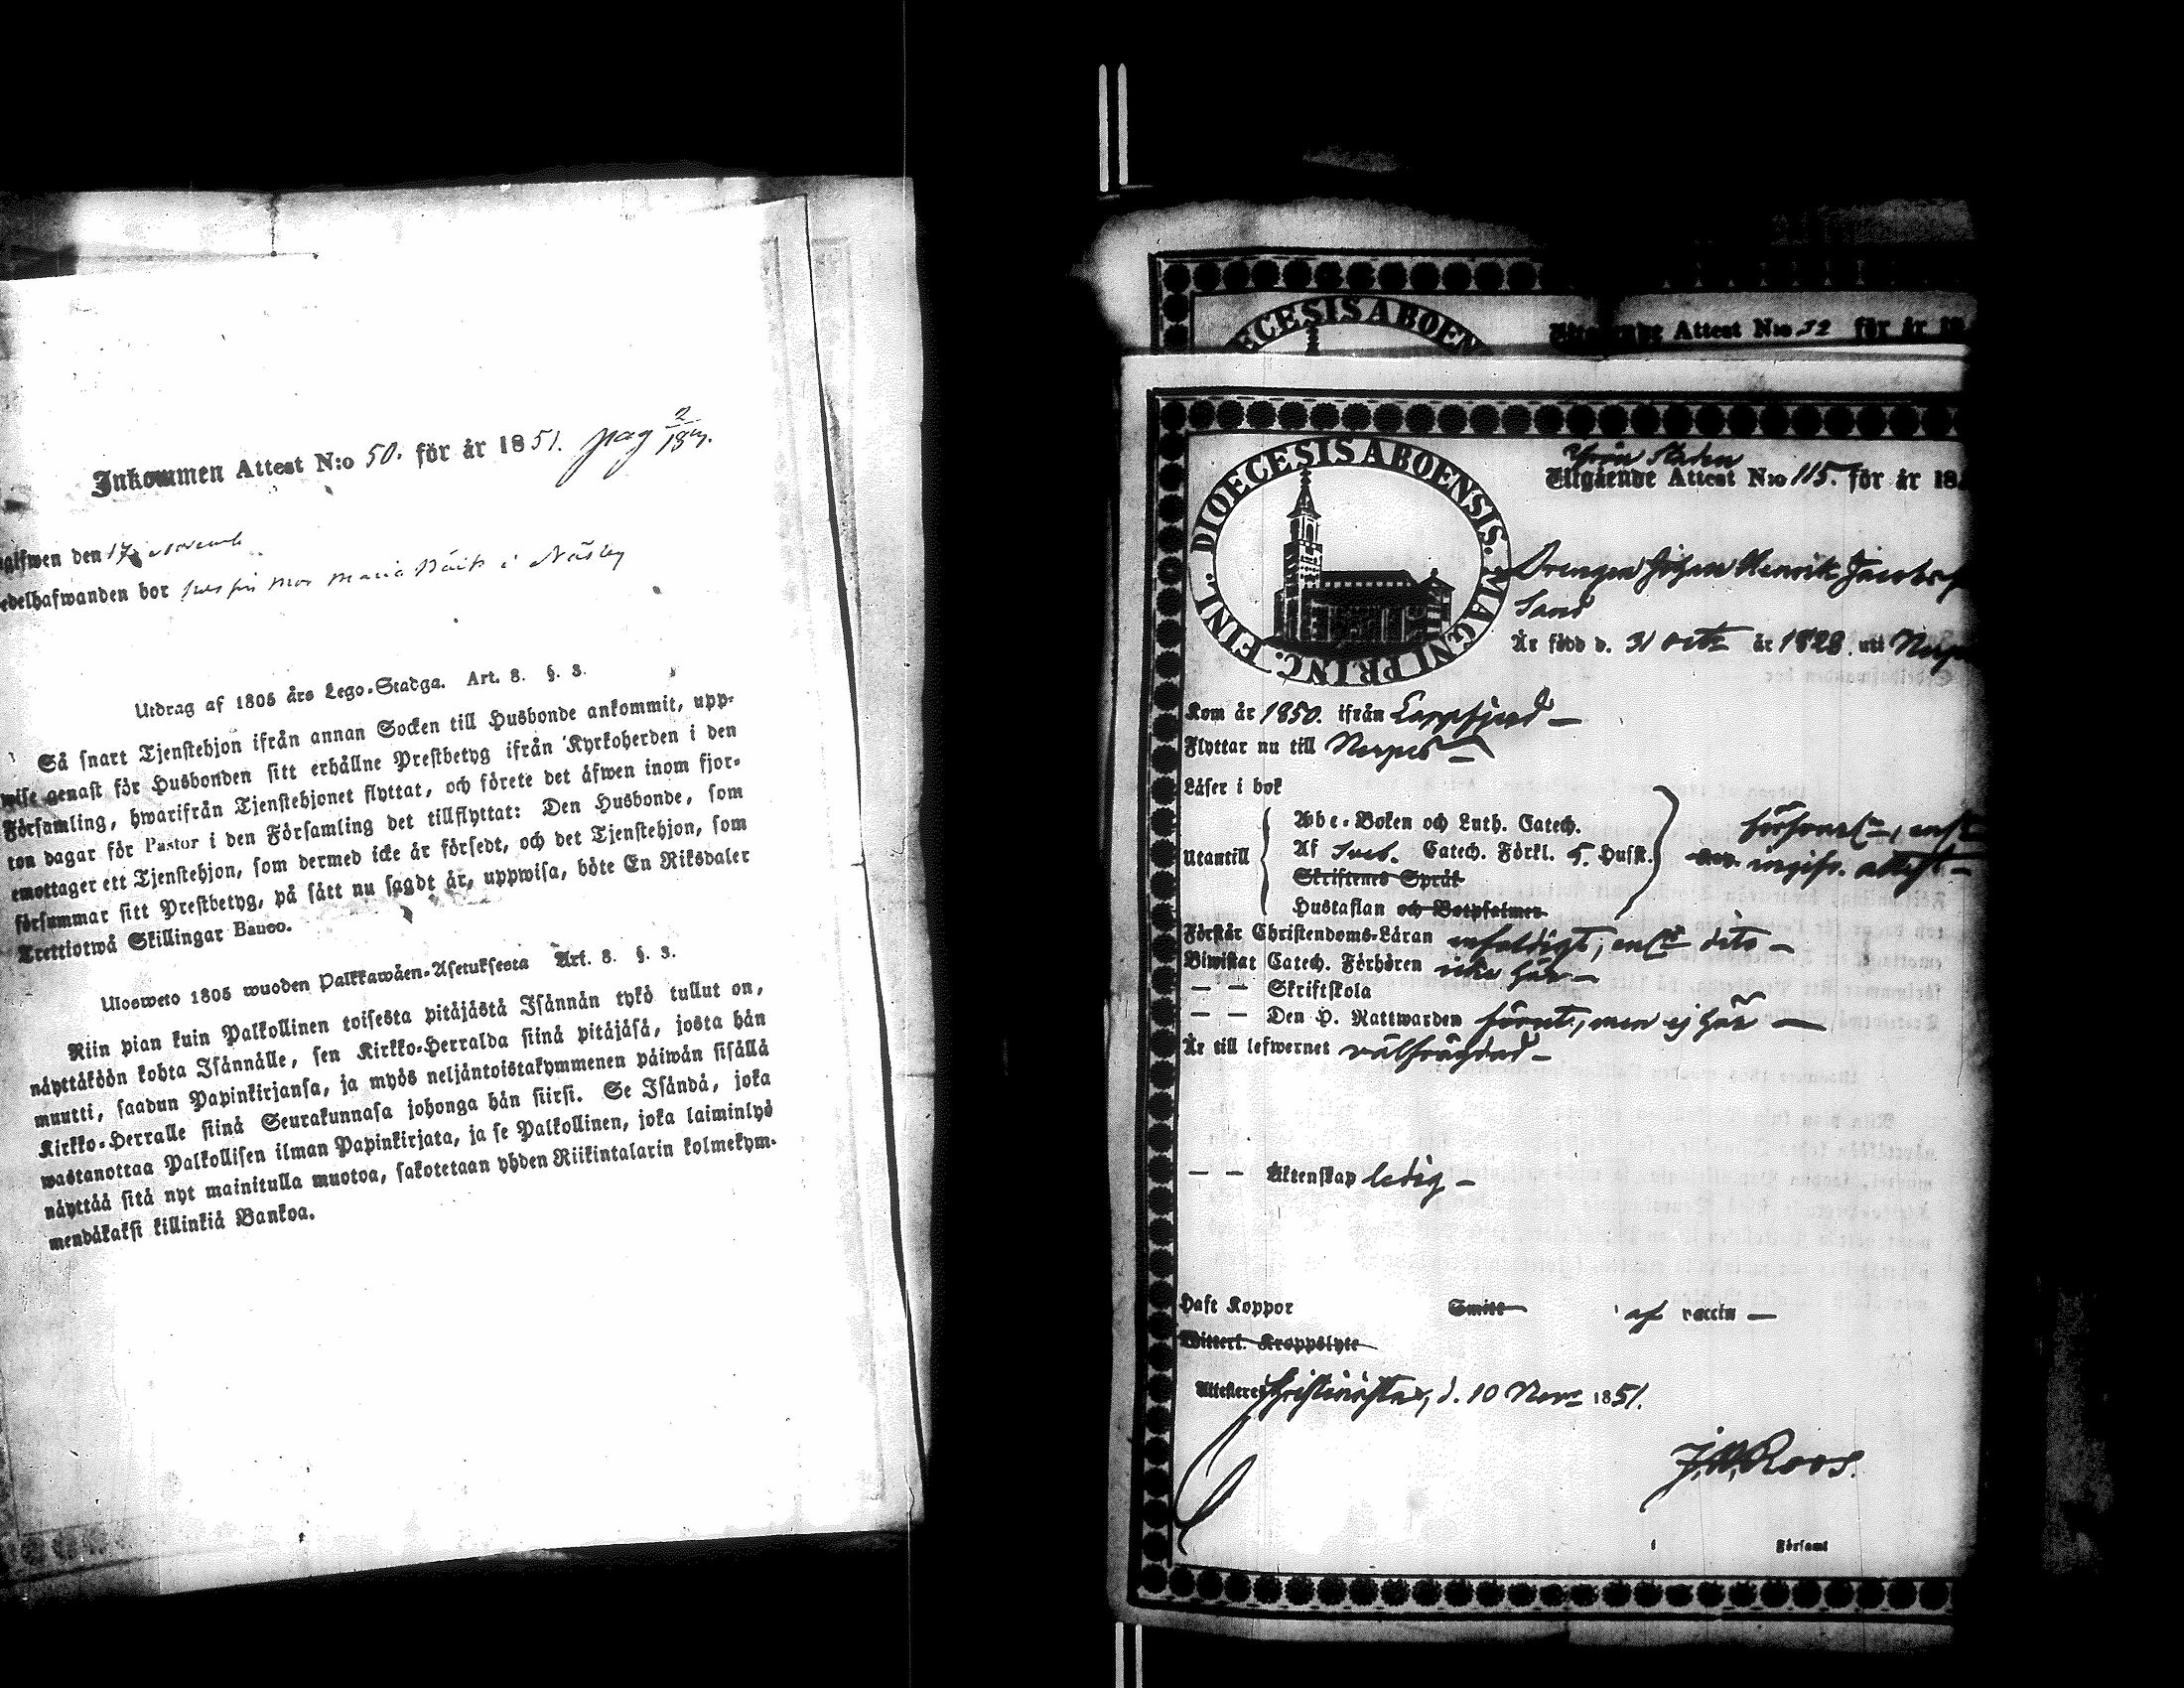 Inkommen Attest N:o 50. för år 1851. pag
den 17 novemb
bor hos sin mor Maria i Näsby
Utdrag af 1805 års Lego-Stadga. Art. 8. §. 3.
Så snart Tjenstehjon ifrån annan Socken till Husbonde ankommit, upp-
wise genast för Husbonden sitt erhållne Prestbetyg ifrån Kyrkoherden i den
Församling, hwarifrån Tjenstehjonet flyttat, och förete det äfwen inom fjor-
ton dagar för Pastor i den Församling det tillflyttat: Den Husbonde, som
emottager ett Tjenstehjon, som dermed icke är försedt, och det Tjenstehjon, som
försummar sitt Prestbetyg, på sätt nu sagdt är, uppwisa, böte En Riksdaler
Trettiotwå Skillingar Banco.
Ulosweto 1805 wuoden Palkkawäen-Asetuksesta Art. 8. §. 3.
Niin pian kuin Palkollinen toisesta pitäjästä Isännän tykö tullut on,
näyttäköön kohta Isännälle, sen Kirkko-Herralda siinä pitäjäsä, josta hän
muutti, saadun Papinkirjansa, ja myös neljäntoistakymmenen päiwän sisällä
Kirkko-Herralle siinä Seurakunnasa johonga hän siirsi. Se Isändä, joka
wastanottaa Palkollisen ilman Papinkirjata, ja se Palkollinen, joka laiminlyö
näyttää sitä nyt mainitulla muotoa, sakotetaan yhden Riikintalarin kolmekym-
mendäkaksi killinkiä Bankoa.
ECESIS ABOEN
Attest N:o 32 för år 18
DIOECESIS ABOENSIS. MAGNI PRINC. FINL.
Från Staden
Utgående Attest N:o 115. för år 18
Drengen Johan Henrik Jacobs
Sand
Är född d. 31 Octr år 1828. uti Nerpes
Kom år 1850. ifrån Lappfjerd —
Flyttar nu till Nerpes —
Läser i bok
Utantill
Abc-Boken och Luth. Catech.
Af Sveb. Catech. Förkl. 5. Husst.
Skriftenes Språk
Hustaflan och Botpsalmer
ingifv. attest —
Förstår Christendoms-Läran enfaldigt, dito —
Biwistat Catech. Förhören icke här —
— — Skriftskola
— — Den H. Nattwarden förut, men ej här —
Är till lefwernet välfrägdad —
— — Äktenskap ledig —
Haft Koppor Smitt af vaccin —
Witterl. Kroppslyte
Attesterer Christinestad, d. 10 Novr 1851.
J.W. Roos.
Församl